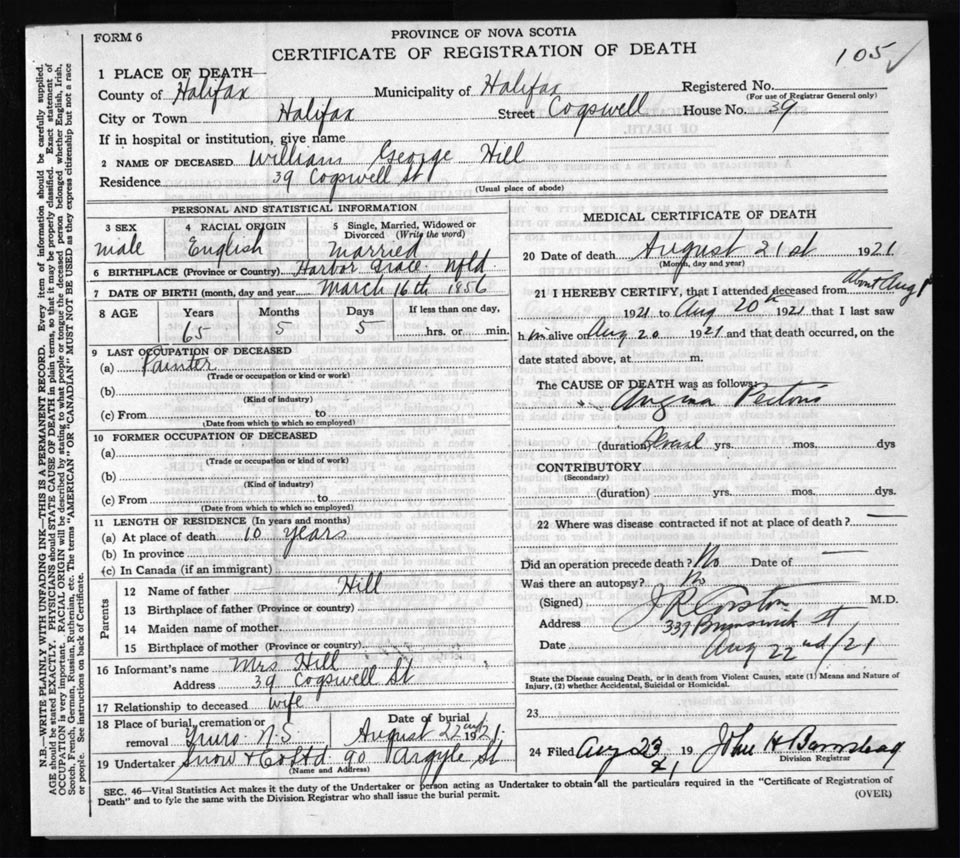 FORM 6
PROVINCE OF NOVA SCOTIA
CERTIFICATE OF REGISTRATION OF DEATH
105
1 PLACE OF DEATH—
County of Halifax Municipality of Halifax Registered No.
(For use of Registrar General only)
City or Town Halifax Street Cogswell House No. 39
If in hospital or institution, give name
2 NAME OF DECEASED William George Hill
Residence 39 Cogswell St
(Usual place of abode)
PERSONAL AND STATISTICAL INFORMATION
3 SEX 4 RACIAL ORIGIN 5 Single, Married, Widowed or Divorced (Write the word)
male English Married
6 BIRTHPLACE (Province or Country) Harbor Grace Nfld
7 DATE OF BIRTH (month, day and year) March 16th 1856
8 AGE Years Months Days If less than one day,
65 5 5 hrs. or min.
9 LAST OCCUPATION OF DECEASED
(a) Painter
(Trade or occupation or kind or work)
(b)
(Kind of industry)
(c) From to
(Date from which to which so employed)
10 FORMER OCCUPATION OF DECEASED
(a)
(Trade or occupation or kind of work)
(b)
(Kind of industry)
(c) From to
(Date from which to which so employed)
11 LENGTH OF RESIDENCE (In years and months)
(a) At place of death 10 years
(b) In province
(c) In Canada (if an immigrant)
Parents
12 Name of father Hill
13 Birthplace of father (Province or country)
14 Maiden name of mother
15 Birthplace of mother (Province or country)
16 Informant's name Mrs Hill
Address 39 Cogswell St
17 Relationship to deceased wife
18 Place of burial, cremation or removal Truro N.S Date of burial August 22nd 1921.
19 Undertaker Snow & Co Ltd. 90 Argyle St
(Name and Address)
MEDICAL CERTIFICATE OF DEATH
20 Date of death August 21st 1921
(Month, day and year)
21 I HEREBY CERTIFY, that I attended deceased from About Aug 1
1921 to Aug 20th 1921 that I last saw
him alive on Aug 20 1921 and that death occurred, on the
date stated above, at m.
The CAUSE OF DEATH was as follows:
Angina Pectoris
(duration) yrs. mos. dys
CONTRIBUTORY
(Secondary)
(duration) yrs. mos. dys.
22 Where was disease contracted if not at place of death?
Did an operation precede death? No Date of
Was there an autopsy? No
(Signed) J R Corston M.D.
Address 339 Brunswick St
Date Aug 22nd/21
State the Disease causing Death, or in death from Violent Causes, state (1) Means and Nature of Injury, (2) whether Accidental, Suicidal or Homicidal.
23
24 Filed Aug 23 19 21 John H Barnstead
Division Registrar
SEC. 46—Vital Statistics Act makes it the duty of the Undertaker or person acting as Undertaker to obtain all the particulars required in the "Certificate of Registration of
Death" and to fyle the same with the Division Registrar who shall issue the burial permit.
(OVER)
N.B.—WRITE PLAINLY WITH UNFADING INK.—THIS IS A PERMANENT RECORD. Every item of information should be carefully supplied.
AGE should be stated EXACTLY. PHYSICIANS should STATE CAUSE OF DEATH in plain terms, so that it may be properly classified. Exact statement of
OCCUPATION is very important. RACIAL ORIGIN will be described by stating to what people or tongue the deceased person belonged whether English, Irish,
Scotch, French, German, Russian, Ruthenian, etc. The terms "AMERICAN" OR "CANADIAN" MUST NOT BE USED as they express citizenship but not a race
or people. See instructions on back of Certificate.